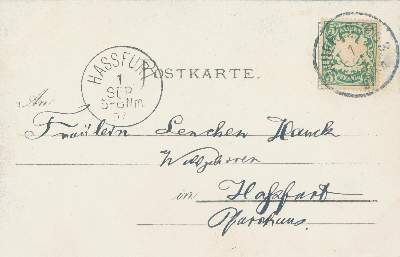 HASSFURT
1
SEP
POSTKARTE.
An
Fräulein Lenchen Hauck
Wohlgeboren
in Haßfurt
Pfarrhaus.